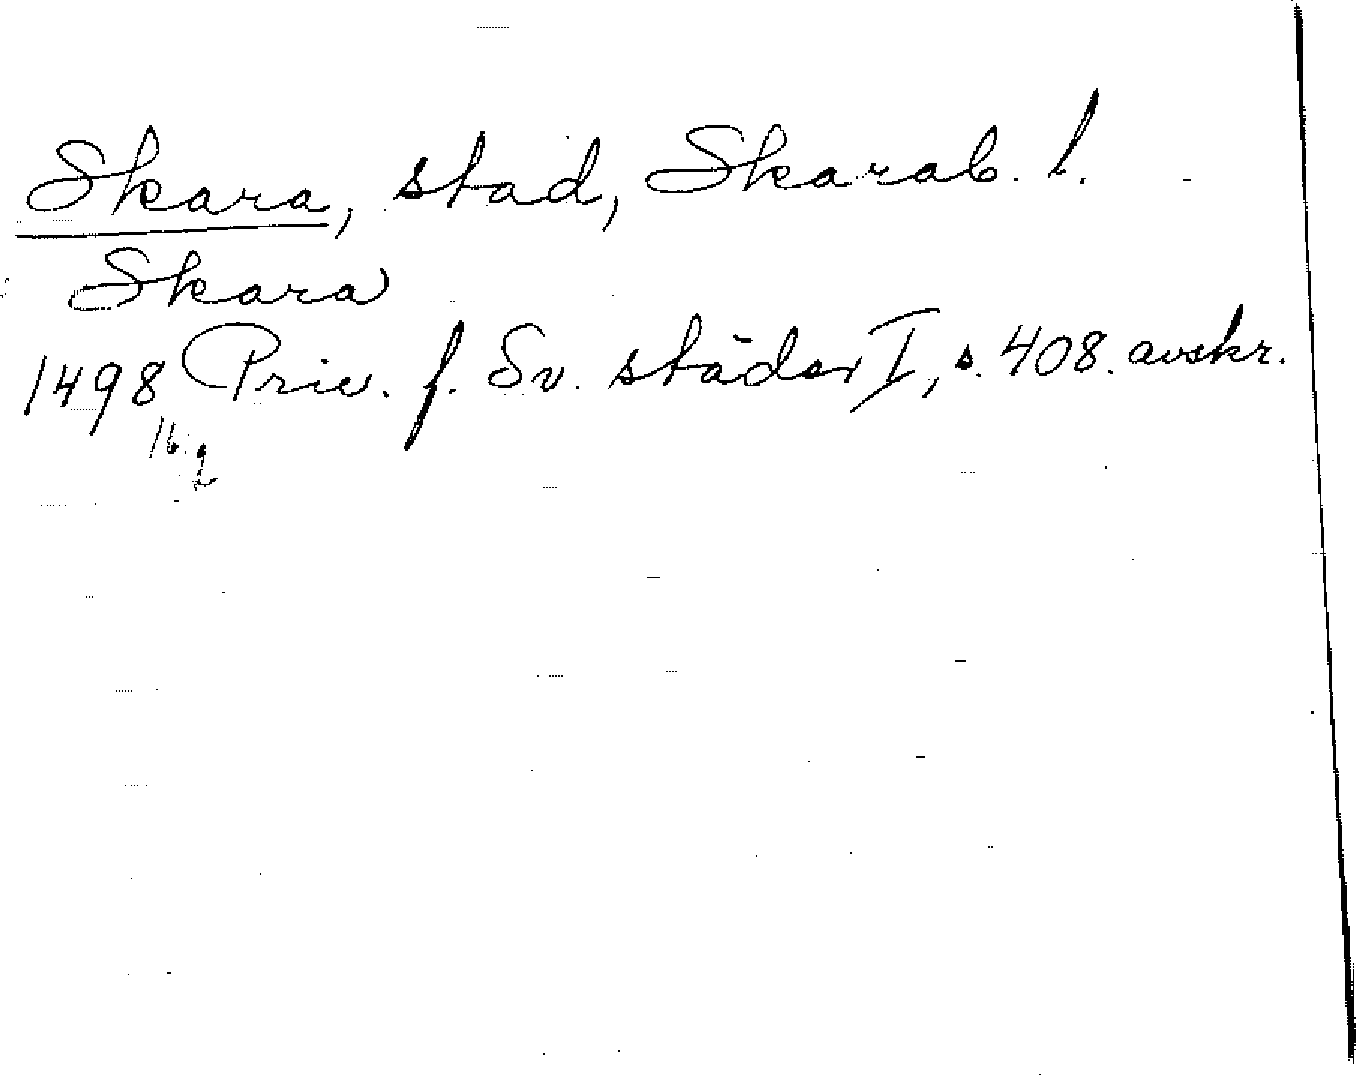 Skara, stad, Skarab. l.
Skara
1498 Priv. f. Sv. städer I, s. 408. avskr.
16